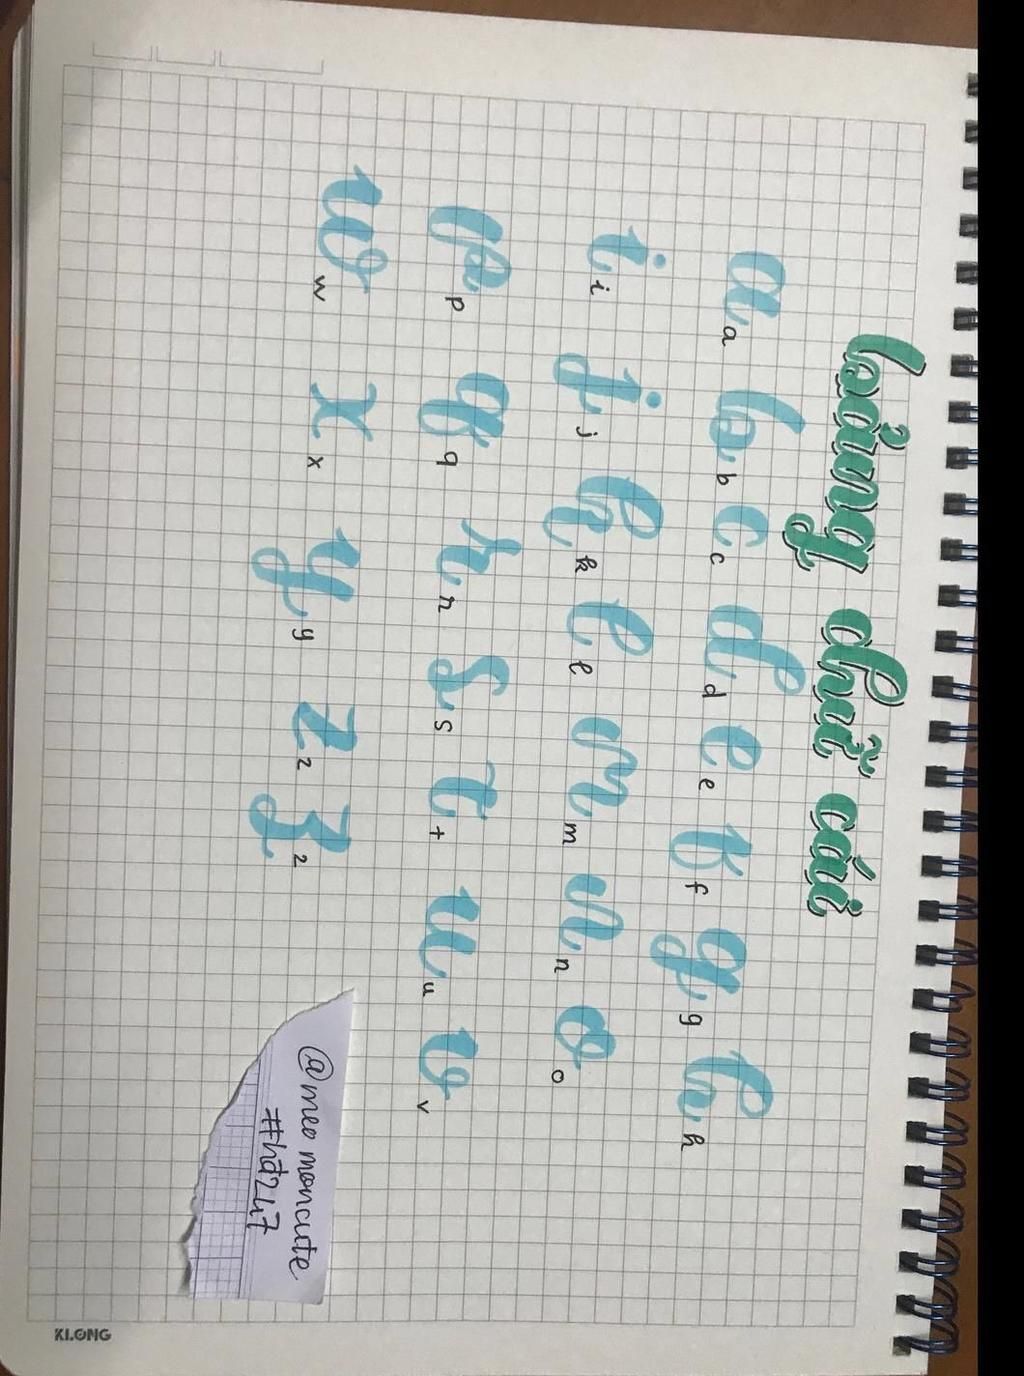 bảng chữ cái
a a b b c c d d e e f f g g h h
i i j j k k l l m m n n o o
p p q q r r s s t t u u v v
w w x x y y z z z z
@meo moncute
#hđ247
KLONG